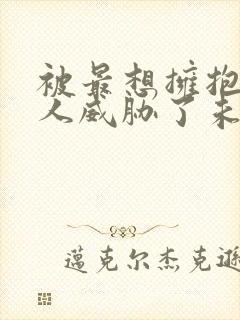 被最想擁抱
人威胁了未
蓝克尔杰克遜